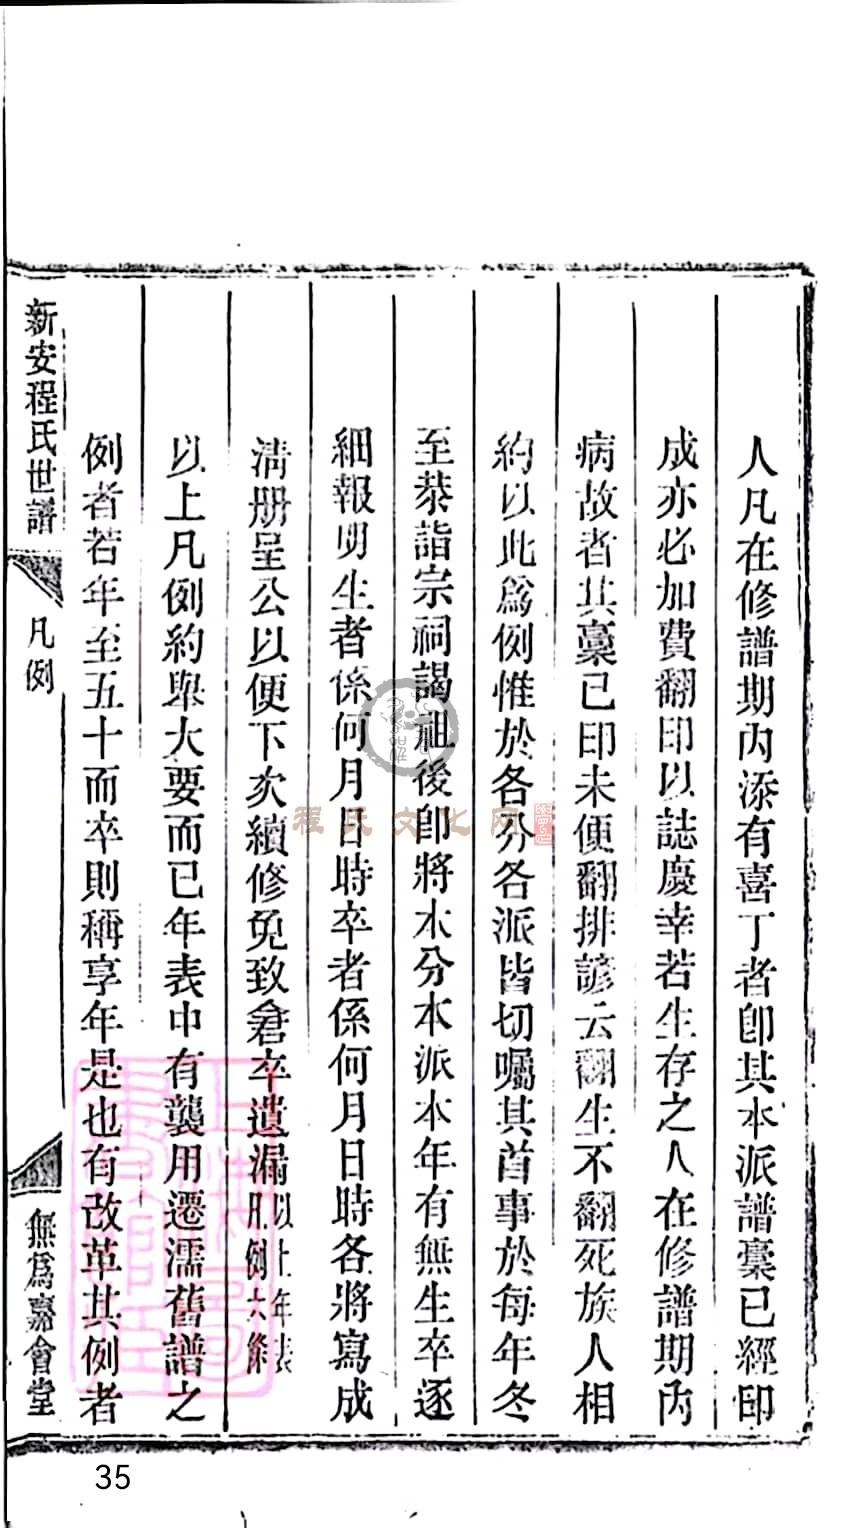 人凡在修譜期內添有喜丁者卽其本派譜稾已經印
成亦必加費翻印以誌慶幸若生存之人在修譜期內
病故者其稾已印未便翻排諺云翻生不翻死族人相
約以此爲例惟於各分各派皆切囑其首事於每年冬
至恭詣宗祠謁祖後卽將本分本派本年有無生卒逐
細報明生者係何月日時卒者係何月日時各將寫成
淸册呈公以便下次續修免致倉卒遺漏以上年表凡例六條
以上凡例約舉大要而已年表中有襲用遷濡舊譜之
例者若年至五十而卒則稱享年是也有改革其例者
新安程氏世譜
凡例
無爲嘉會堂
程氏文化网
35